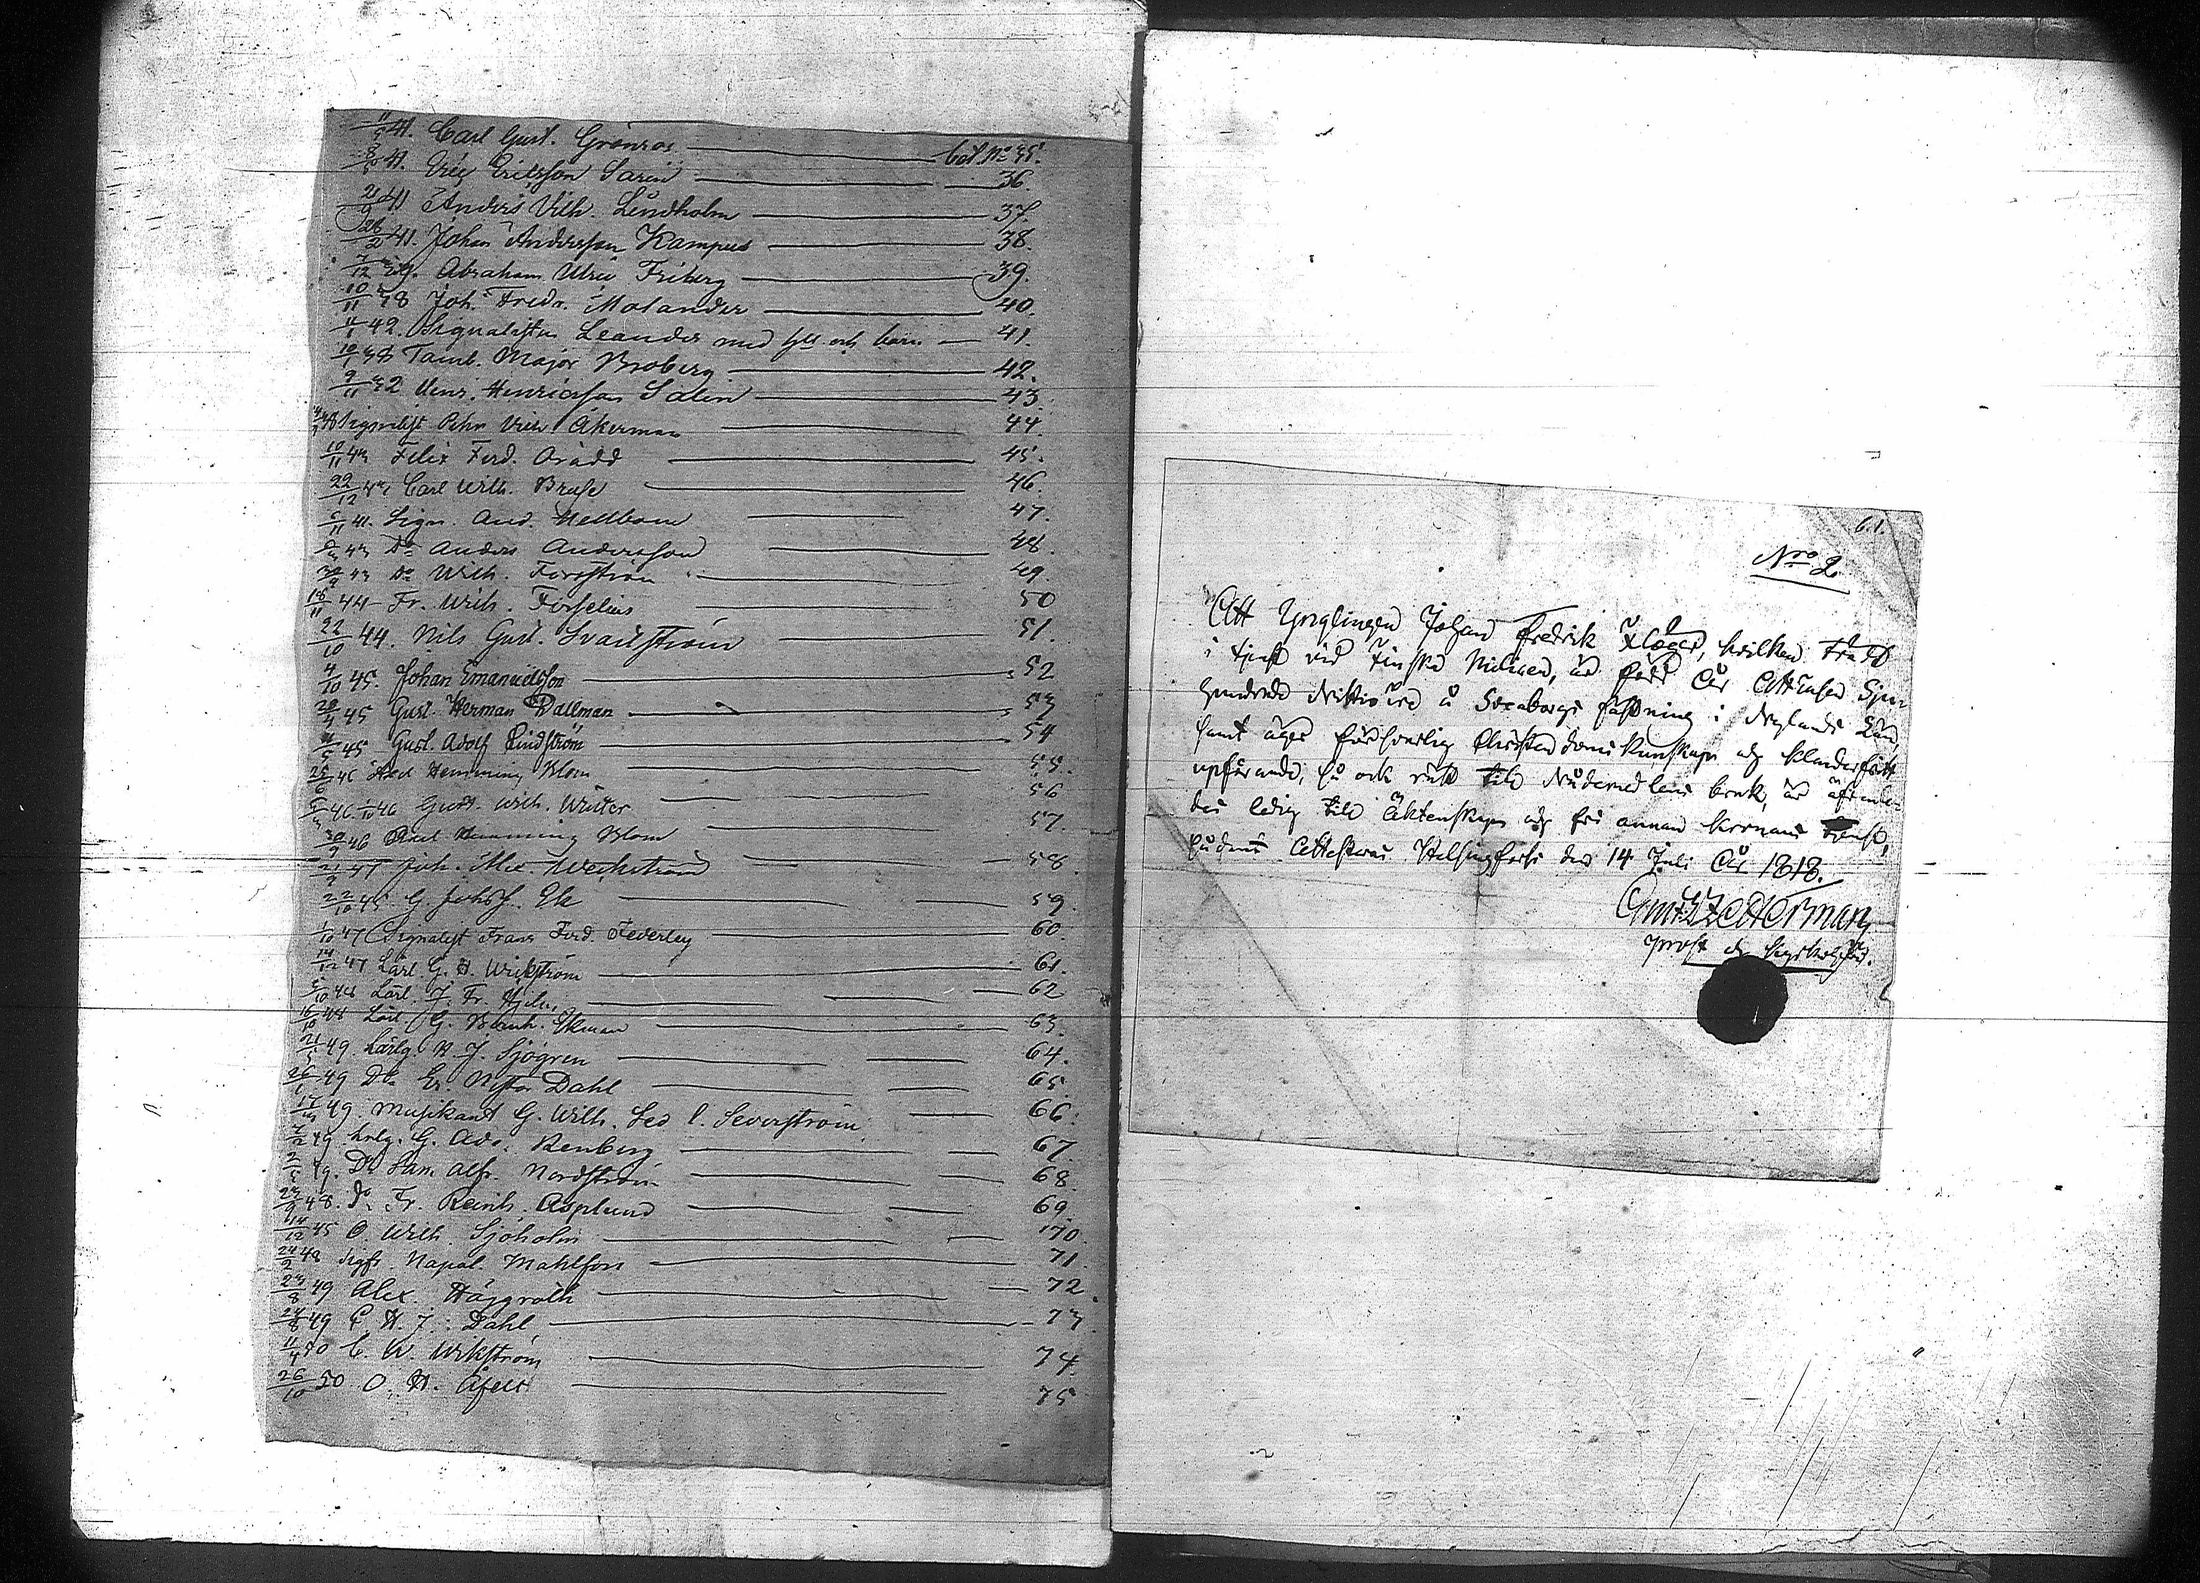 11/5 41. Carl Gust. Grönroos bil No 35.
8/5 41. Eric Ericsson Sarin 36.
21/9 41 Anders Vilh. Lindholm 37.
26/2 41. Johan Andersson Kampus 38.
7/12 39. Abraham Ulric Friberg 39.
10/11 38 Joh. Fredr. Molander 40.
4/1 42. Signalisten Leander med och barn 41.
10/1 38 Tamb. Major Broberg 42.
9/11 32 Henr. Henricsson Salin 43.
Signalist Pehr Vilh Åkerman 44.
10/11 43 Felix Ferd. Orädd 45.
22/12 43 Carl Wilh. Bruse 46.
6/11 41. Sign. And. Hellbom 47.
43 Do Anders Andersson 48.
30/9 43 Do Wilh. Forsström 49.
18/11 44 Fr. Wilh. Forselius 50
22/10 44. Nils Gust. Svanström 51.
4/10 45. Johan Emanuelsson 52
28/4 45 Gust. Herman Dallman 53
4/5 45 Gust. Adolf Lindström 54
25/6 46 Axel Hemming Blom 55.
46 1/10 46 Gust. Wilh. Winter 56
30/9 46 Axel Hemming Blom 57.
21/9 47 Joh. Alex. Weckström 58.
22/10 45 G. Johs. Ek 59.
1/10 47 Signalist Frans Ferd. Federley 60.
14/12 47 Lärl. G. A. Wickström 61.
5/10 48 Lärl. J. Fr. 62
16/10 48 Lärl. G. Bernh. Ekman 63.
21/5 49. Lärlg. A. J. Sjögren 64.
26/6 49 Do Er. Nestor Dahl 65.
17/3 49. Musikant G. Wilh. Sed l. Severström 66.
7/2 49 Lrlg. G. Ado. Renberg 67.
2/5 49. Do Sam. Alfr. Nordström 68.
23/9 48. Do Fr. Reinh. Asplund 69.
14/12 45 O. Wilh. Sjöholm 70.
24/2 48 Napol. Mahlfors 71
23/8 49 Alex. Häggroth 72.
24/8 49 C. H. J. Dahl 73
11/4 50 C. W. Wikström 74.
26/10 50 O. H. Åfelt 75
61.
Nro 2.
Att Ynglingen Johan Fredrik, hvilken trädt
i tjenst vid Finska Milicen, är född År Ettusen Sju-
hundrade å Sveaborgs fästning i Nylands Län,
samt äger försvarlig Christendoms kunskap och klanderfritt
uppförande, är
ledig till Äktenskap och fri annan kronans tjenst,
Attesteras. Helsingfors den 14 Juli År 1818.
Prost och Kyrkoherde.